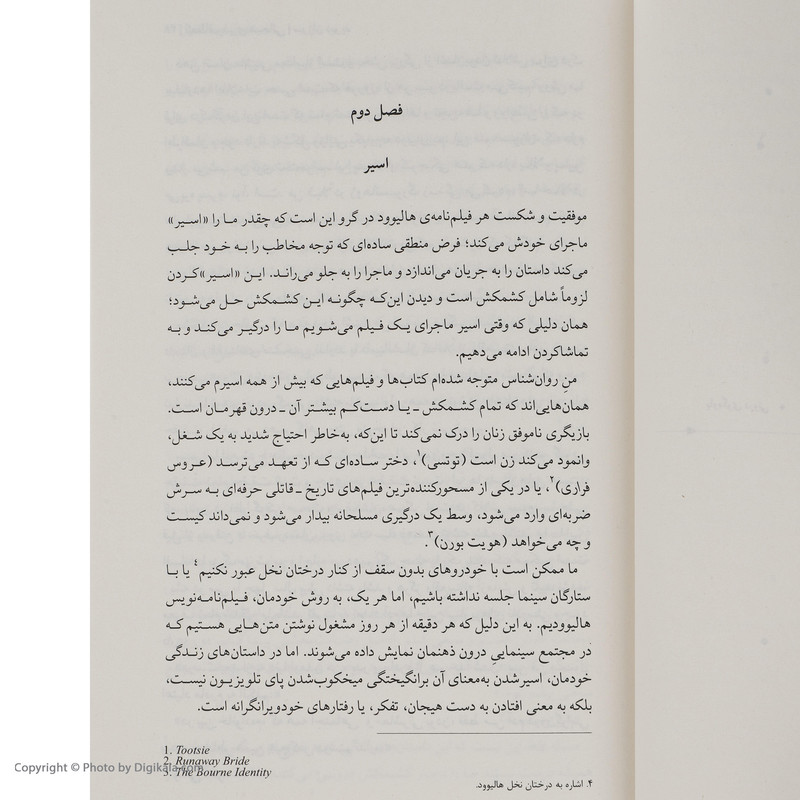 فصل دوم
اسیر
موفقیت و شکست هر فیلم‌نامه‌ی هالیوود در گرو این است که چقدر ما را «اسیر»
ماجرای خودش می‌کند؛ فرض منطقی ساده‌ای که توجه مخاطب را به خود جلب
می‌کند داستان را به جریان می‌اندازد و ماجرا را به جلو می‌راند. این «اسیر»کردن
لزوماً شامل کشمکش است و دیدن این‌که چگونه این کشمکش حل می‌شود؛
همان دلیلی که وقتی اسیر ماجرای یک فیلم می‌شویم ما را درگیر می‌کند و به
تماشاکردن ادامه می‌دهیم.
منِ روان‌شناس متوجه شده‌ام کتاب‌ها و فیلم‌هایی که بیش از همه اسیرم می‌کنند،
همان‌هایی‌اند که تمام کشمکش ـ یا دست‌کم بیشتر آن ـ درون قهرمان است.
بازیگری ناموفق زنان را درک نمی‌کند تا این‌که، به‌خاطر احتیاج شدید به یک شغل،
وانمود می‌کند زن است (توتسی)۱، دختر ساده‌ای که از تعهد می‌ترسد (عروس
فراری)۲، یا در یکی از مسحورکننده‌ترین فیلم‌های تاریخ ـ قاتلی حرفه‌ای به سرش
ضربه‌ای وارد می‌شود، وسط یک درگیری مسلحانه بیدار می‌شود و نمی‌داند کیست
و چه می‌خواهد (هویت بورن)۳.
ما ممکن است با خودروهای بدون سقف از کنار درختان نخل عبور نکنیم۴ یا با
ستارگان سینما جلسه نداشته باشیم، اما هر یک، به روش خودمان، فیلم‌نامه‌نویس
هالیوودیم. به این دلیل که هر دقیقه از هر روز مشغول نوشتن متن‌هایی هستیم که
در مجتمع سینماییِ درون ذهنمان نمایش داده می‌شوند. اما در داستان‌های زندگی
خودمان، اسیرشدن به‌معنای آن برانگیختگی میخکوب‌شدن پای تلویزیون نیست،
بلکه به معنی افتادن به دست هیجان، تفکر، یا رفتارهای خودویرانگرانه است.
1. Tootsie
2. Runaway Bride
3. The Bourne Identity
۴. اشاره به درختان نخل هالیوود.
Copyright © Photo by Digikala.com